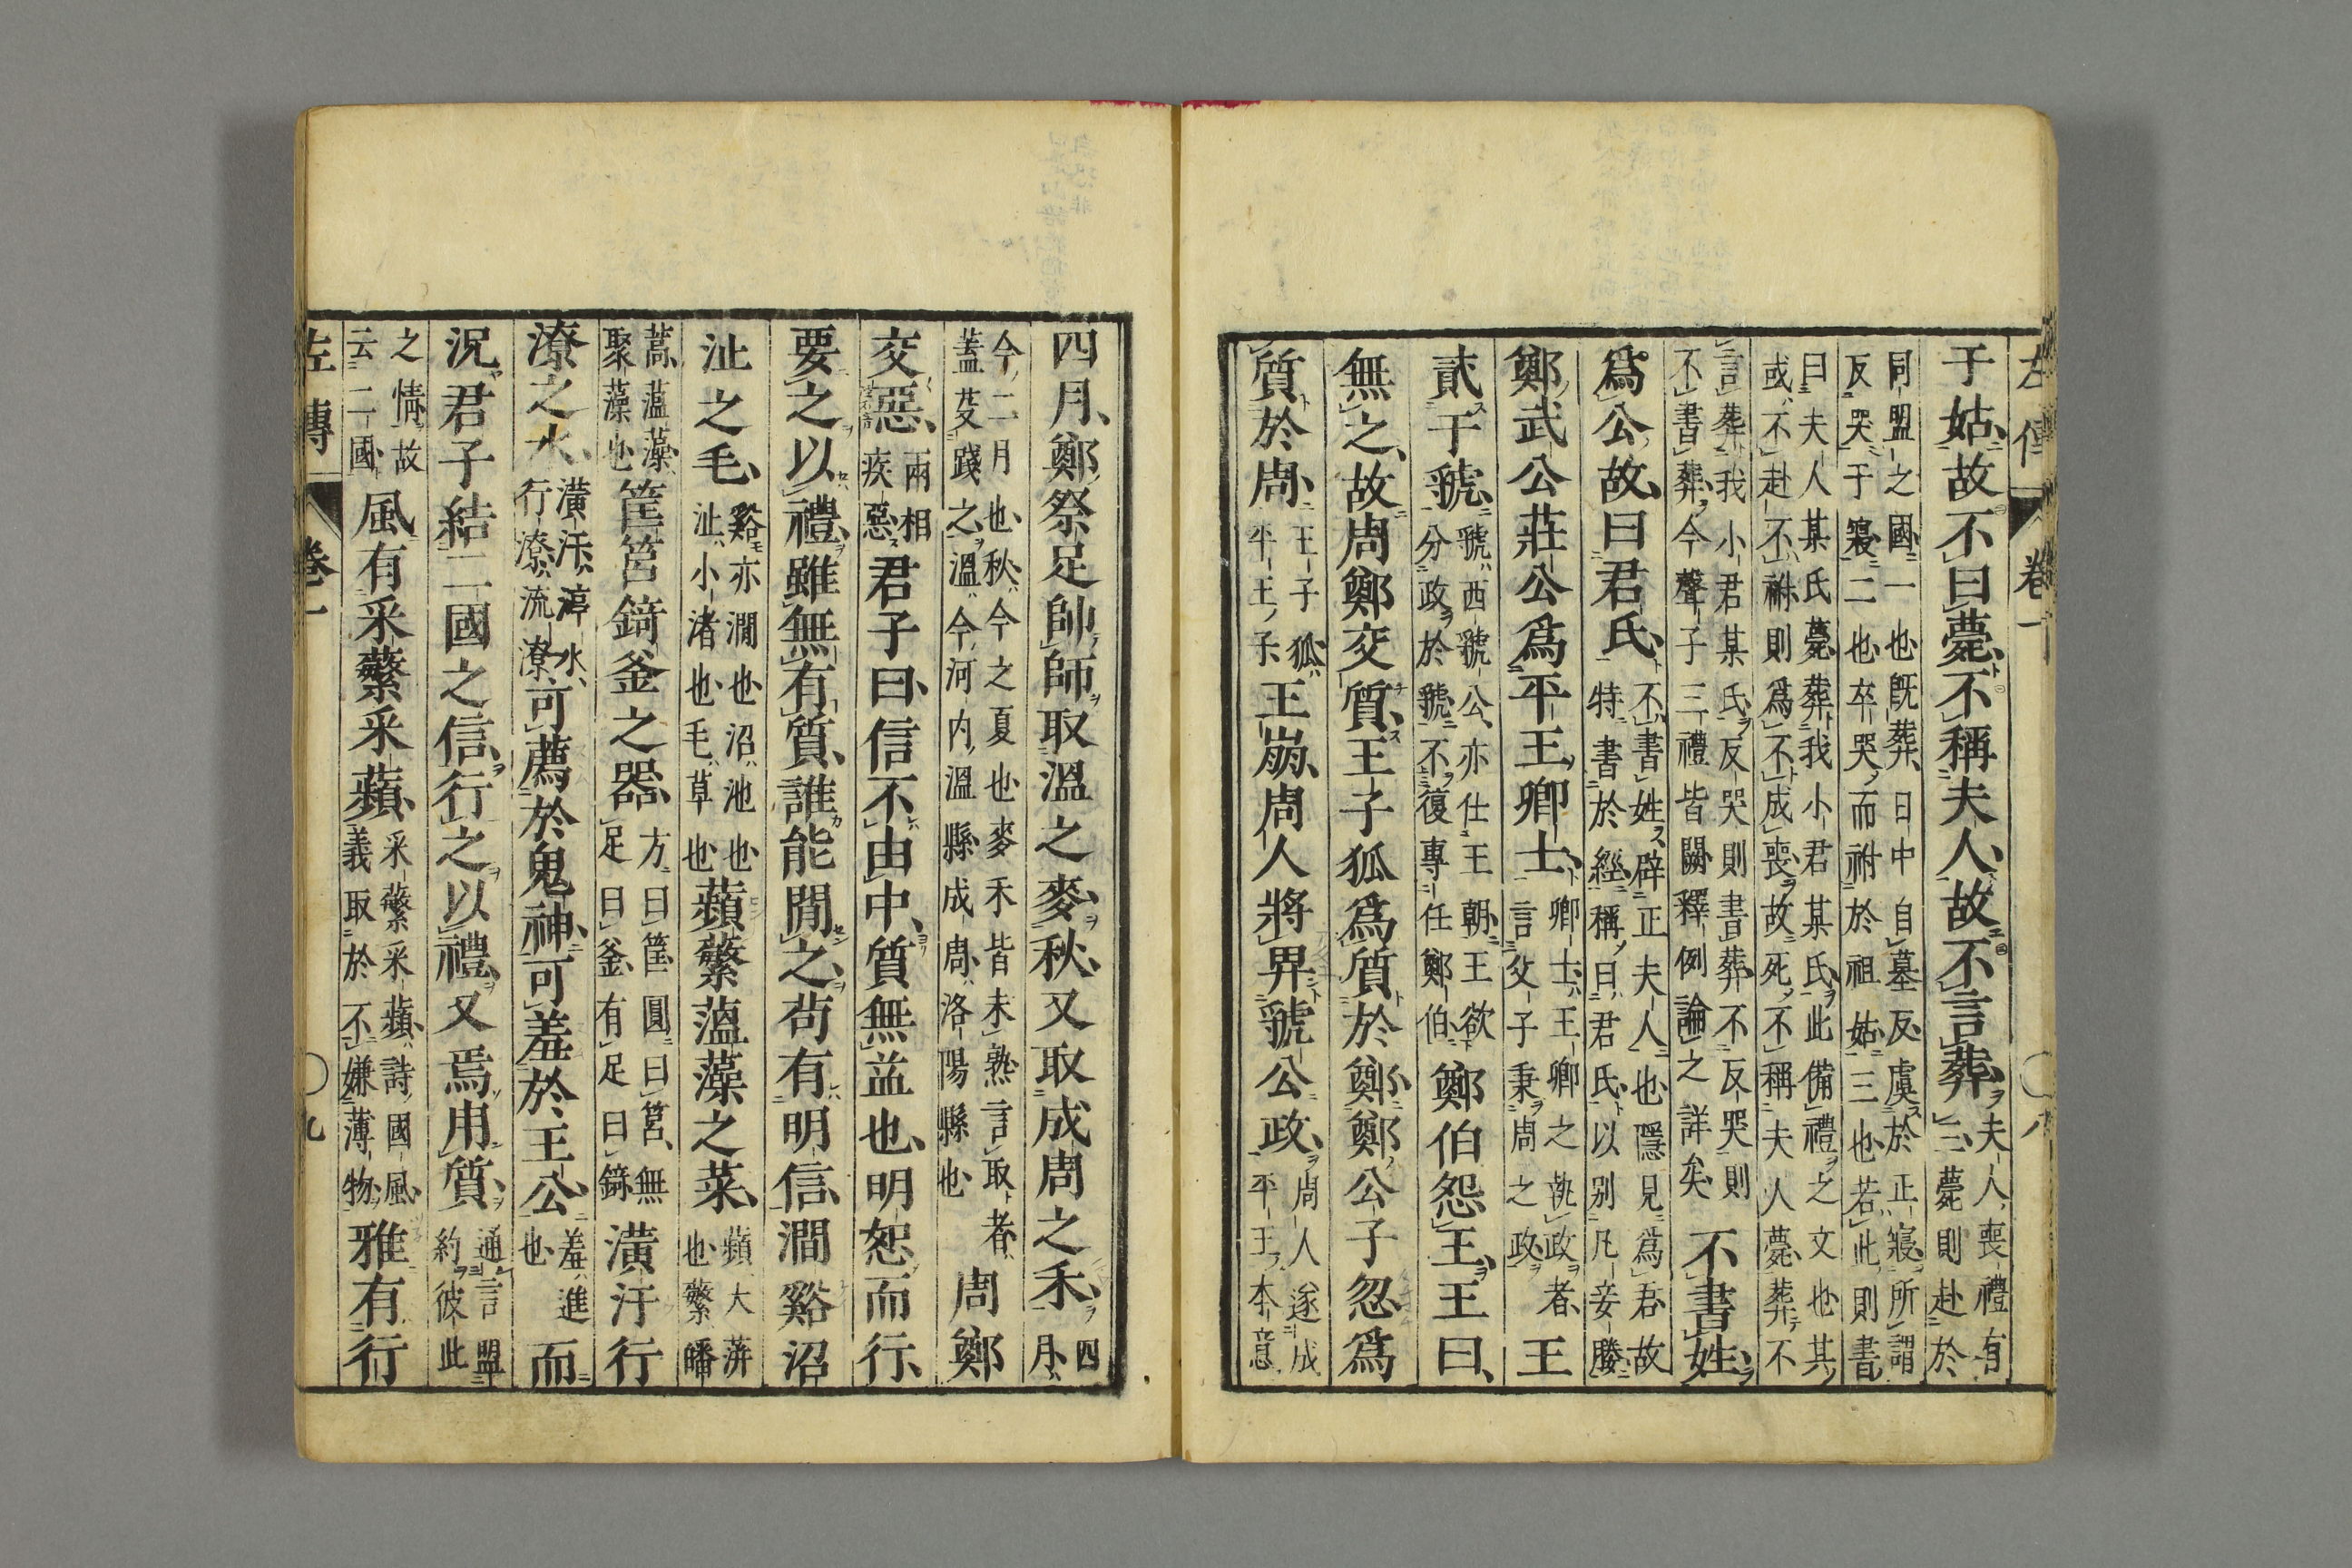 左傳 卷一 〇八
于姑故不曰薨不稱夫人故不言葬夫人喪禮有三薨則赴於
同盟之國一也既葬日中自墓反虞於正寢所謂
反哭于寢二也卒哭而祔於祖姑三也若此則書
曰夫人某氏薨葬我小君某氏此備禮之文也其
或不赴不祔則爲不成喪故死不稱夫人薨葬不
言葬我小君某氏反哭則書葬不反哭則
不書葬今聲子三禮皆闕釋例論之詳矣不書姓
爲公故曰君氏不書姓辟正夫人也隱見爲君故特書於經稱曰君氏以別凡妾媵
鄭武公莊公爲平王卿士卿士王卿之執政者言父子秉周之政王
貳于虢虢西虢公亦仕王朝王欲分政於虢不復專任鄭伯鄭伯怨王王曰
無之故周鄭交質王子狐爲質於鄭鄭公子忽爲
質於周王子狐平王子王崩周人將畀虢公政周人遂成平王本意
四月鄭祭足帥師取溫之麥秋又取成周之禾四月
今二月也秋今之夏也麥禾皆未熟言取者
蓋芟踐之溫今河内溫縣成周洛陽縣也周鄭
交惡兩相疾惡君子曰信不由中質無益也明恕而行
要之以禮雖無有質誰能間之苟有明信澗谿沼
沚之毛谿亦澗也沼池也沚小渚也毛草也蘋蘩薀藻之菜蘋大蓱也蘩皤
蒿薀藻聚藻也筐筥錡釜之器方曰筐圓曰筥無足曰釜有足曰錡潢汙行
潦之水潢汙渟水行潦流潦可薦於鬼神可羞於王公羞進也而
況君子結二國之信行之以禮又焉用質通言盟約彼此
之情故云二國風有采蘩采蘋采蘩采蘋詩國風義取於不嫌薄物雅有行
左傳 卷一 〇九